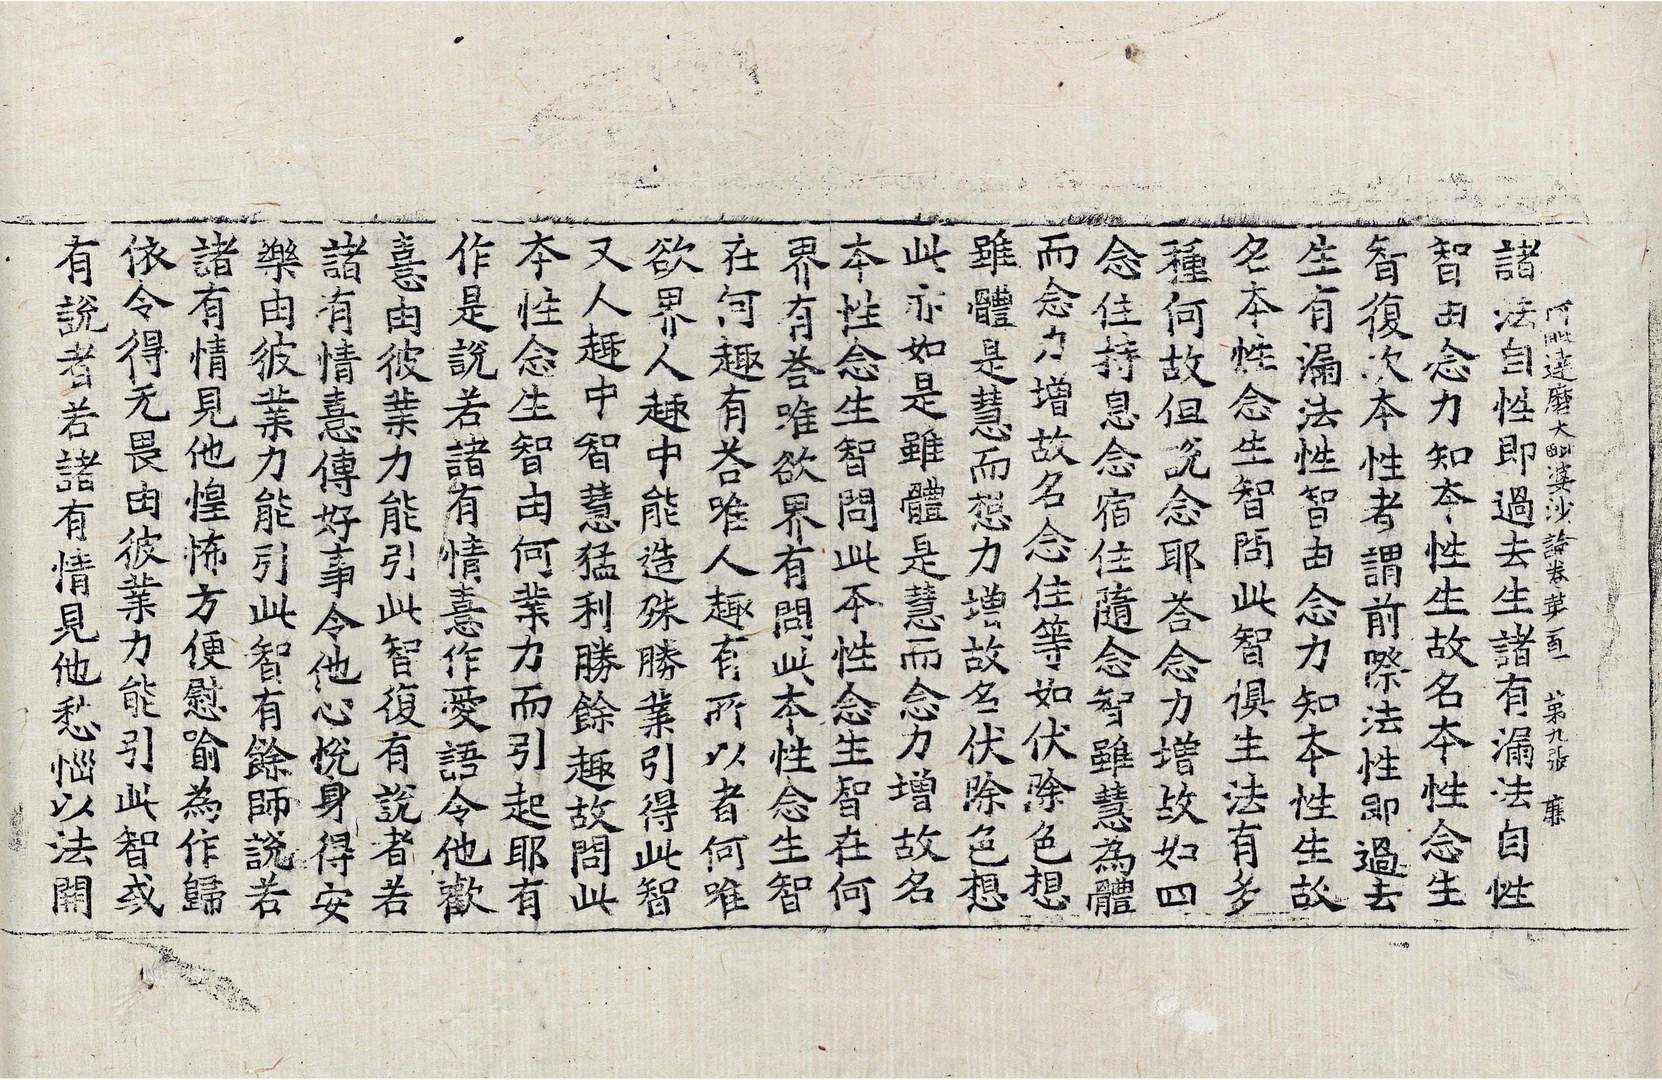 阿毗達磨大毗婆沙論卷第一百一 第九張 廉
諸法自性即過去生諸有漏法自性
智由念力知本性生故名本性念生
智復次本性者謂前際法性即過去
生有漏法性智由念力知本性生故
名本性念生智問此智俱生法有多
種何故但說念耶荅念力增故如四
念住持息念宿住隨念智雖慧為體
而念力增故名念住等如伏除色想
雖體是慧而想力增故名伏除色想
此亦如是雖體是慧而念力增故名
本性念生智問此本性念生智在何
界有荅唯欲界有問此本性念生智
在何趣有荅唯人趣有所以者何唯
欲界人趣中能造殊勝業引得此智
又人趣中智慧猛利勝餘趣故問此
本性念生智由何業力而引起耶有
作是說若諸有情憙作愛語令他歡
憙由彼業力能引此智復有說者若
諸有情憙傳好事令他心悅身得安
樂由彼業力能引此智有餘師說若
諸有情見他惶怖方便慰喻為作歸
依令得无畏由彼業力能引此智或
有說者若諸有情見他愁惱以法開